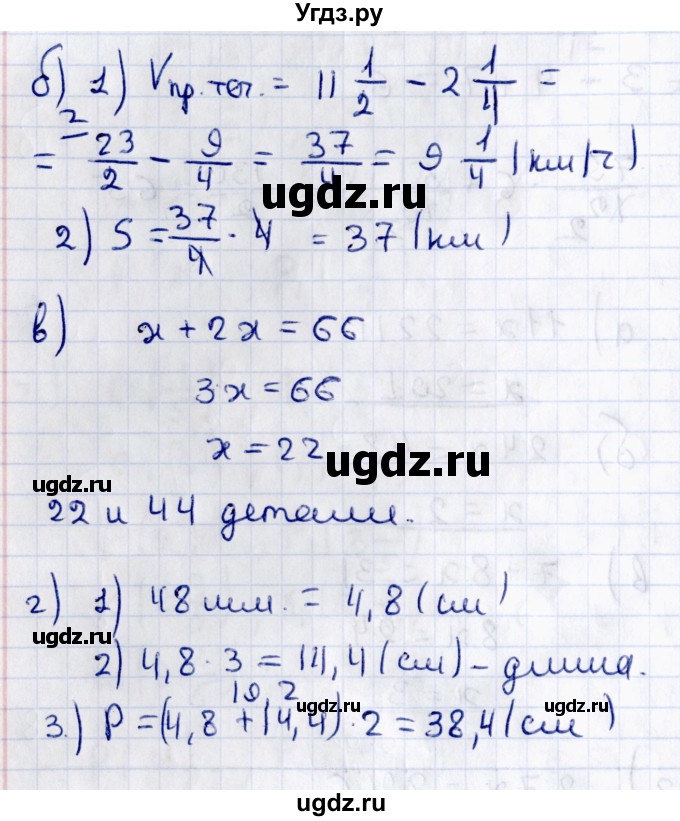 Угдз.ру
б) 1) Vпр. теч. = 11 1/2 - 2 1/4 =
2
= 23/2 - 9/4 = 37/4 = 9 1/4 (км/ч)
ugdz.ru
2) S = 37/4 · 4 = 37 (км)
в) x + 2x = 66
3x = 66
x = 22
ugdz.ru
ugdz.ru
22 и 44 детали.
г) 1) 48 мм. = 4,8 (см)
ugdz.ru
2) 4,8 · 3 = 14,4 (см) - длина.
19,2
ugdz.ru
ugdz.ru
3.) P = (4,8 + 14,4) · 2 = 38,4 (см)
ugdz.ru